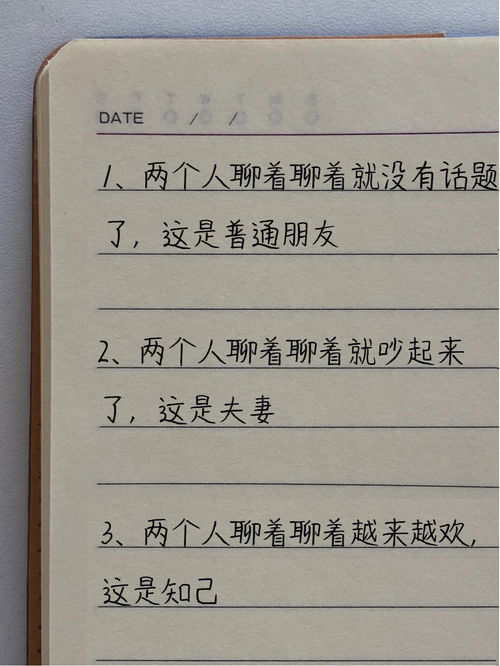 DATE / /
1、两个人聊着聊着就没有话题
了，这是普通朋友
2、两个人聊着聊着就吵起来
了，这是夫妻
3、两个人聊着聊着越来越欢，
这是知己